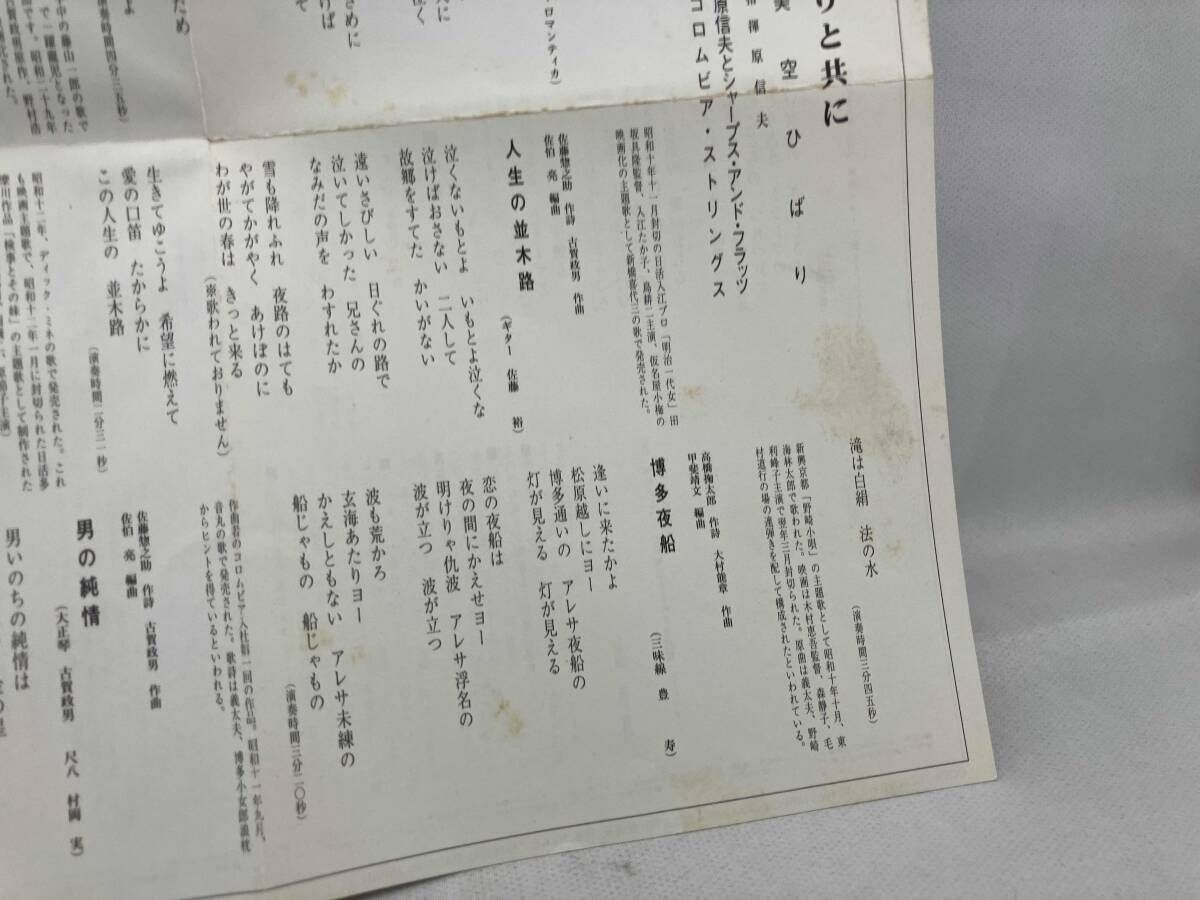 りと共に
美空ひばり
指揮 原信夫
原信夫とシャープス・アンド・フラッツ
コロムビア・ストリングス
ロマンティカ)
さめに
けば
ため
演奏時間四分三五秒)
昭和十年十一月封切の日活入江プロ「明治一代女」田
坂具隆監督、入江たか子、島耕二主演、仮名屋小梅の
映画化の主題歌として新橋喜代三の歌で発売された。
人生の並木路
(ギター 佐藤 裕)
佐藤惣之助 作詩 古賀政男 作曲
佐伯 亮 編曲
泣くないもとよ いもとよ泣くな
泣けばおさない 二人して
故郷をすてた かいがない
遠いさびしい 日ぐれの路で
泣いてしかった 兄さんの
なみだの声を わすれたか
雪も降れふれ 夜路のはても
やがてかがやく あけぼのに
わが世の春は きっと来る
(東歌われておりません)
生きてゆこうよ 希望に燃えて
愛の口笛 たからかに
この人生の 並木路
(演奏時間二分三一秒)
昭和十二年、ディック・ミネの歌で発売された。これ
も映画主題歌で、昭和十二年一月に封切られた日活多
摩川作品「検事とその妹」の主題歌として制作された
滝は白絹 法の水
(演奏時間三分四五秒)
新興京都「野崎小唄」の主題歌として昭和十年十月、東
海林太郎で歌われた。映画は木村恵吾監督、森静子、毛
利峰子主演で翌年三月封切られた。原曲は義太夫、野崎
村道行の場の連弾きを配して構成されたといわれている。
博多夜船
(三味線 豊 寿)
高橋掬太郎 作詩 大村能章 作曲
甲斐靖文 編曲
逢いに来たかよ
松原越しにヨー
博多通いの アレサ夜船の
灯が見える 灯が見える
恋の夜船は
夜の間にかえせヨー
明けりゃ仇波 アレサ浮名の
波が立つ 波が立つ
波も荒かろ
玄海あたりヨー
かえしともない アレサ未練の
船じゃもの 船じゃもの
(演奏時間三分二〇秒)
作曲者のコロムビア入社第一回の作品。昭和十一年九月、
音丸の歌で発売された。歌詩は義太夫、博多小女郎浪枕
からヒントを得ているといわれる。
男の純情
(大正琴 古賀政男 尺八 村岡 実)
佐藤惣之助 作詩 古賀政男 作曲
佐伯 亮 編曲
男いのちの純情は